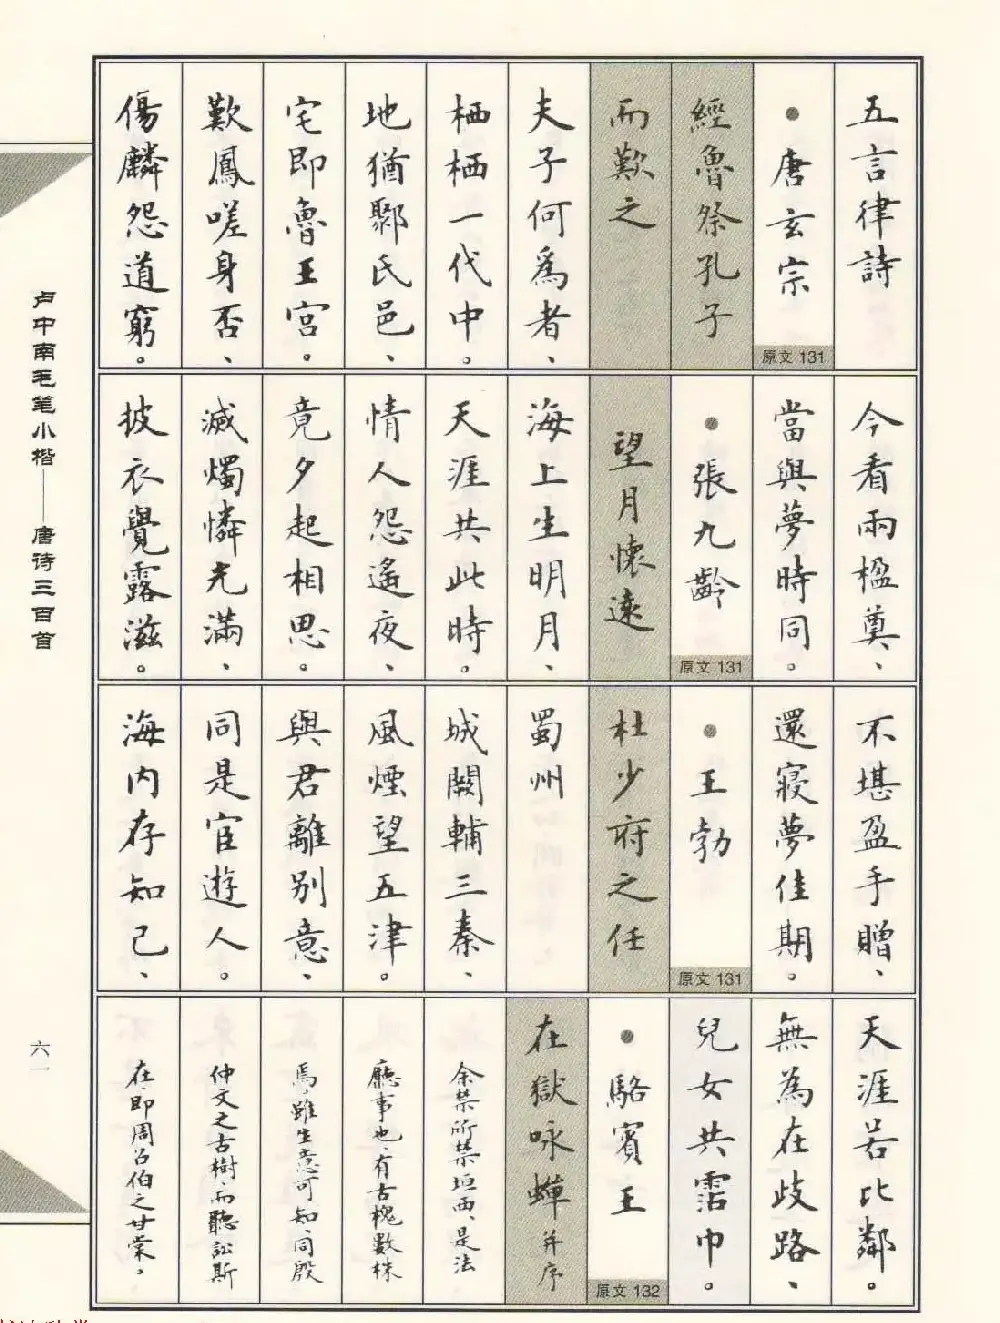 五言律詩
唐玄宗
原文 131
經魯祭孔子
而歎之
夫子何為者、
栖栖一代中。
地猶鄹氏邑、
宅即魯王宮。
歎鳳嗟身否、
傷麟怨道窮。
今看兩楹奠、
當與夢時同。
張九齡
原文 131
望月懷遠
海上生明月、
天涯共此時。
情人怨遙夜、
竟夕起相思。
滅燭憐光滿、
披衣覺露滋。
不堪盈手贈、
還寢夢佳期。
王勃
原文 131
杜少府之任
蜀州
城闕輔三秦、
風煙望五津。
與君離別意、
同是宦遊人。
海內存知己、
天涯若比鄰。
無為在歧路、
兒女共霑巾。
駱賓王
原文 132
在獄咏蟬并序
余禁所禁垣西、是法
廳事也、有古槐數株
焉、雖生意可知、同殷
仲文之古樹、而聽訟斯
在、即周召伯之甘棠。
卢中南毛笔小楷——唐诗三百首
六一